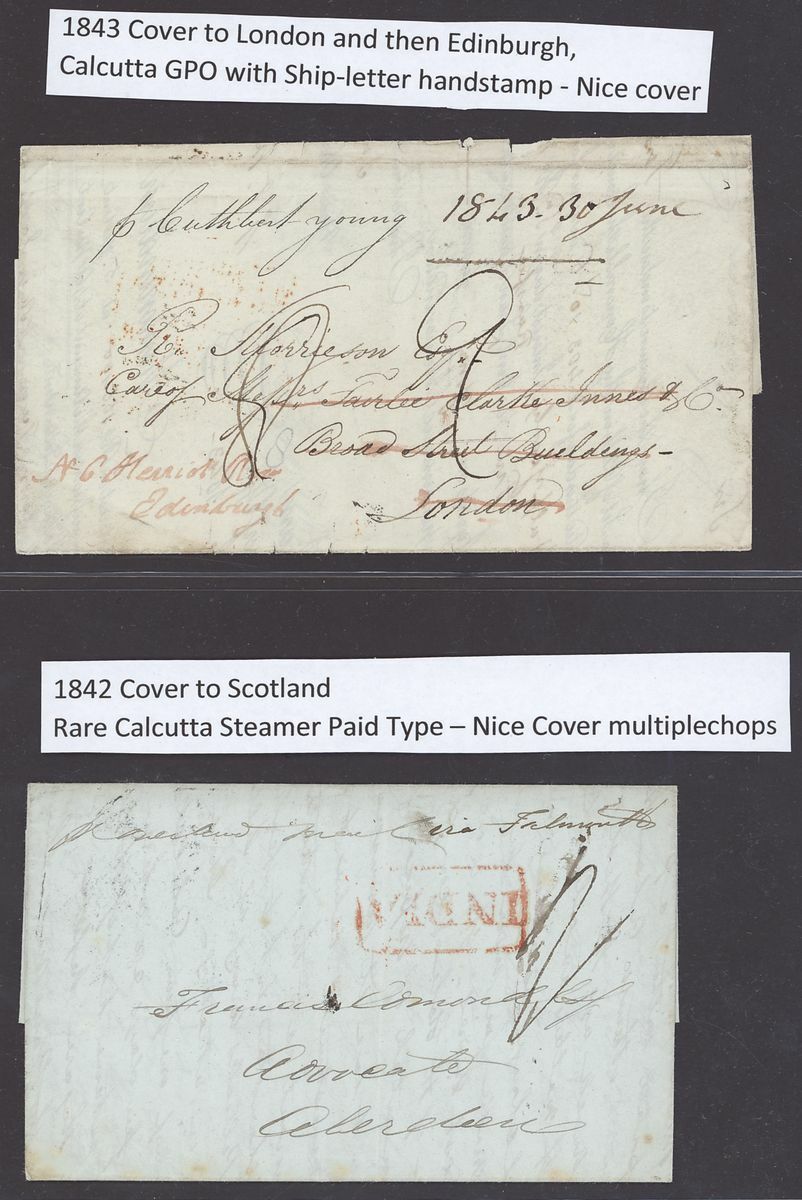 1843 Cover to London and then Edinburgh,
Calcutta GPO with Ship-letter handstamp - Nice cover
p Cuthbert young 1843. 30 June
R. Morrieson Esqr
Care of Messrs Fairlie Clarke Innes & Co
Broad Street Buildings -
London
No 6 Heriot Row
Edinburgh
8
2
1842 Cover to Scotland
Rare Calcutta Steamer Paid Type – Nice Cover multiplechops
Overland mail via Falmouth
INDIA
Francis Edmond Esq
Advocate
Aberdeen